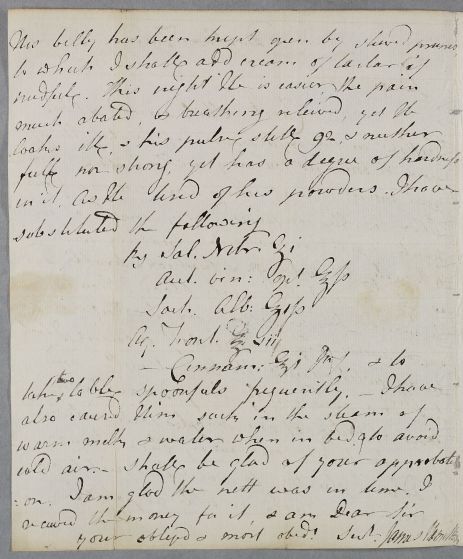 His belly has been kept open by stewed prunes
to which I shall add cream of tartar if
needful. This night He is easier, the pain
much abated, & breathing relieved, yet He
looks ill, & his pulse still 92, & neither
full nor strong, yet has a degree of hardness
in it. As He tired of his powders, I have
substituted the following
Rx Sal. Nitr. ʒi
Ant. vin: ʒſs
Sach. Alb. ʒiſs
Aq. Font. ℥iii
— Cinnam: ʒi & to
take two table spoonfuls frequently, — I have
also caused Him suck in the steam of
warm milk & water when in bed, to avoid
cold air. — Shall be glad of your approbati
:on. I am glad the nett was in time. I
received the money for it, & am Dear Sir
your obliged & most obedt. Servt. James